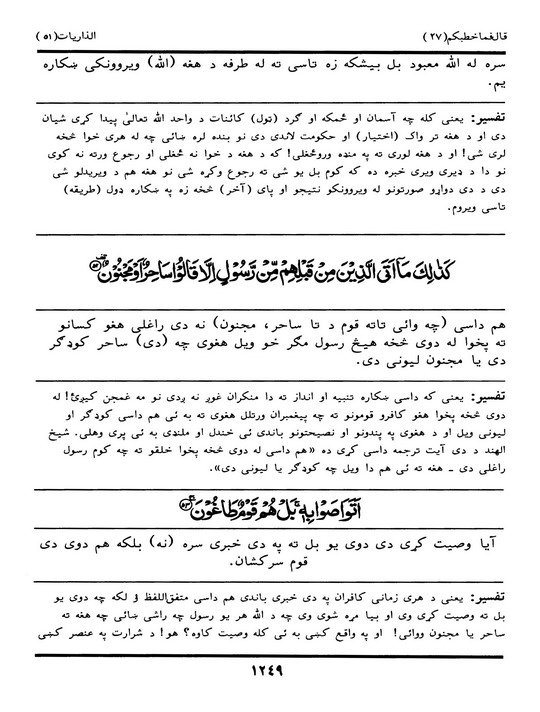 قال فماخطبکم (۲۷)
الذاریات (۵۱)
سره له الله معبود بل بیشکه زه تاسی ته له طرفه د هغه (الله) ویروونکی ښکاره
یم.
تفسیر: یعنی کله چه آسمان او ځمکه او گرد (ټول) کائنات د واحد الله تعالیٰ پیدا کری شیان
دی او د هغه تر واک (اختیار) او حکومت لاندی دی نو بنده لره ښائی چه له هری خوا څخه
لری شی! او د هغه لوری ته په منډه وروځغلی! که د هغه د خوا نه ځغلی او رجوع ورته نه کوی
نو دا د ډیری ویری خبره ده که کوم بل یو شی ته رجوع وکړه شی نو هغه هم د ویریدلو شی
دی د دی دواړو صورتونو له ویروونکو نتیجو او پای (آخر) څخه زه په ښکاره ډول (طریقه)
تاسی ویروم.
كَذٰلِكَ مَآ اَتَى الَّذِيْنَ مِنْ قَبْلِهِمْ مِّنْ رَّسُوْلٍ اِلَّا قَالُوْا سَاحِرٌ اَوْ مَجْنُوْنٌ ﴿۵۲﴾
هم داسی (چه وائی تاته قوم د تا ساحر، مجنون) نه دی راغلی هغو کسانو
ته پخوا له دوی څخه هیڅ رسول مگر خو ویل هغوی چه (دی) ساحر کوډگر
دی یا مجنون لیونی دی.
تفسیر: یعنی که داسی ښکاره تنبیه او انداز ته دا منکران غوږ نه ږدی نو مه غمجن کیږئ! له
دوی څخه پخوا هغو کافرو قومونو ته چه پیغمبران ورتلل هغوی ته به ئی هم داسی کوډگر او
لیونی ویل او د هغوی په پندونو او نصیحتونو باندی ئی خندل او ملنډی به ئی پری وهلی. شیخ
الهند د دی آیت ترجمه داسی کری ده «هم داسی له دوی څخه پخوا خلقو ته چه کوم رسول
راغلی دی ـ هغه ته ئی هم دا ویل چه کوډگر یا لیونی دی».
اَتَوَاصَوْا بِهٖ ۚ بَلْ هُمْ قَوْمٌ طَاغُوْنَ ﴿۵۳﴾
آیا وصیت کری دی دوی یو بل ته په دی خبری سره (نه) بلکه هم دوی دی
قوم سرکشان.
تفسیر: یعنی د هری زمانی کافران په دی خبری باندی هم داسی متفق اللفظ ؤ لکه چه دوی یو
بل ته وصیت کری وی او بیا مړه شوی وی چه د الله هر یو رسول چه راشی ښائی چه هغه ته
ساحر یا مجنون ووائی! او په واقع کښی به ئی کله وصیت کاوه؟ هو! د شرارت په عنصر کښی
۱۲۴۹